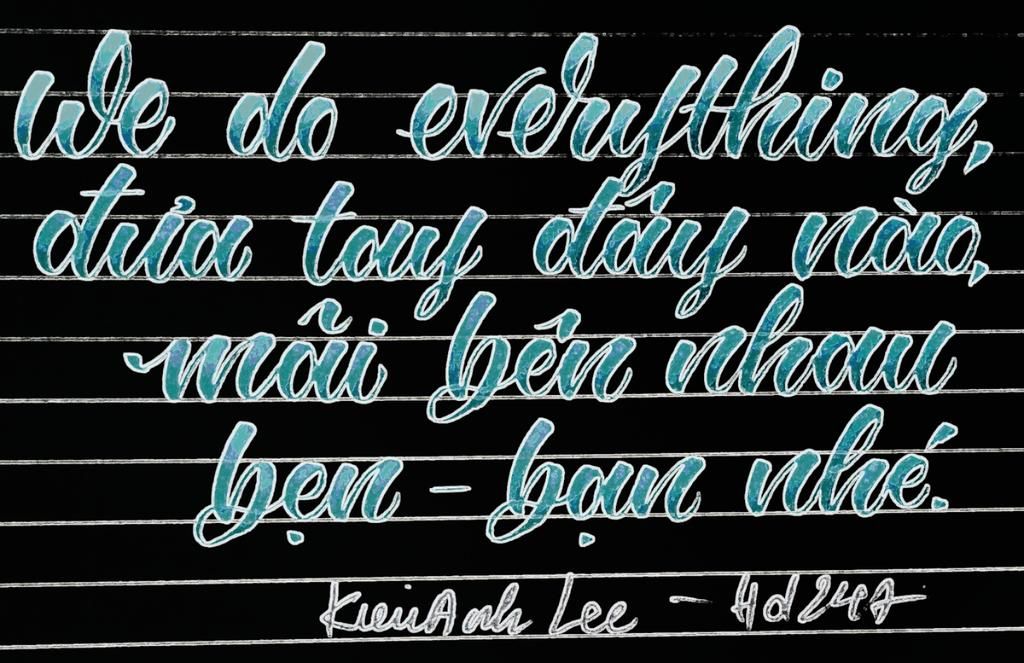 We do everything,
đưả tay đây nào,
mãi bên nhau
bẹn - bạn nhé.
KieuAnh Lee - Hd247